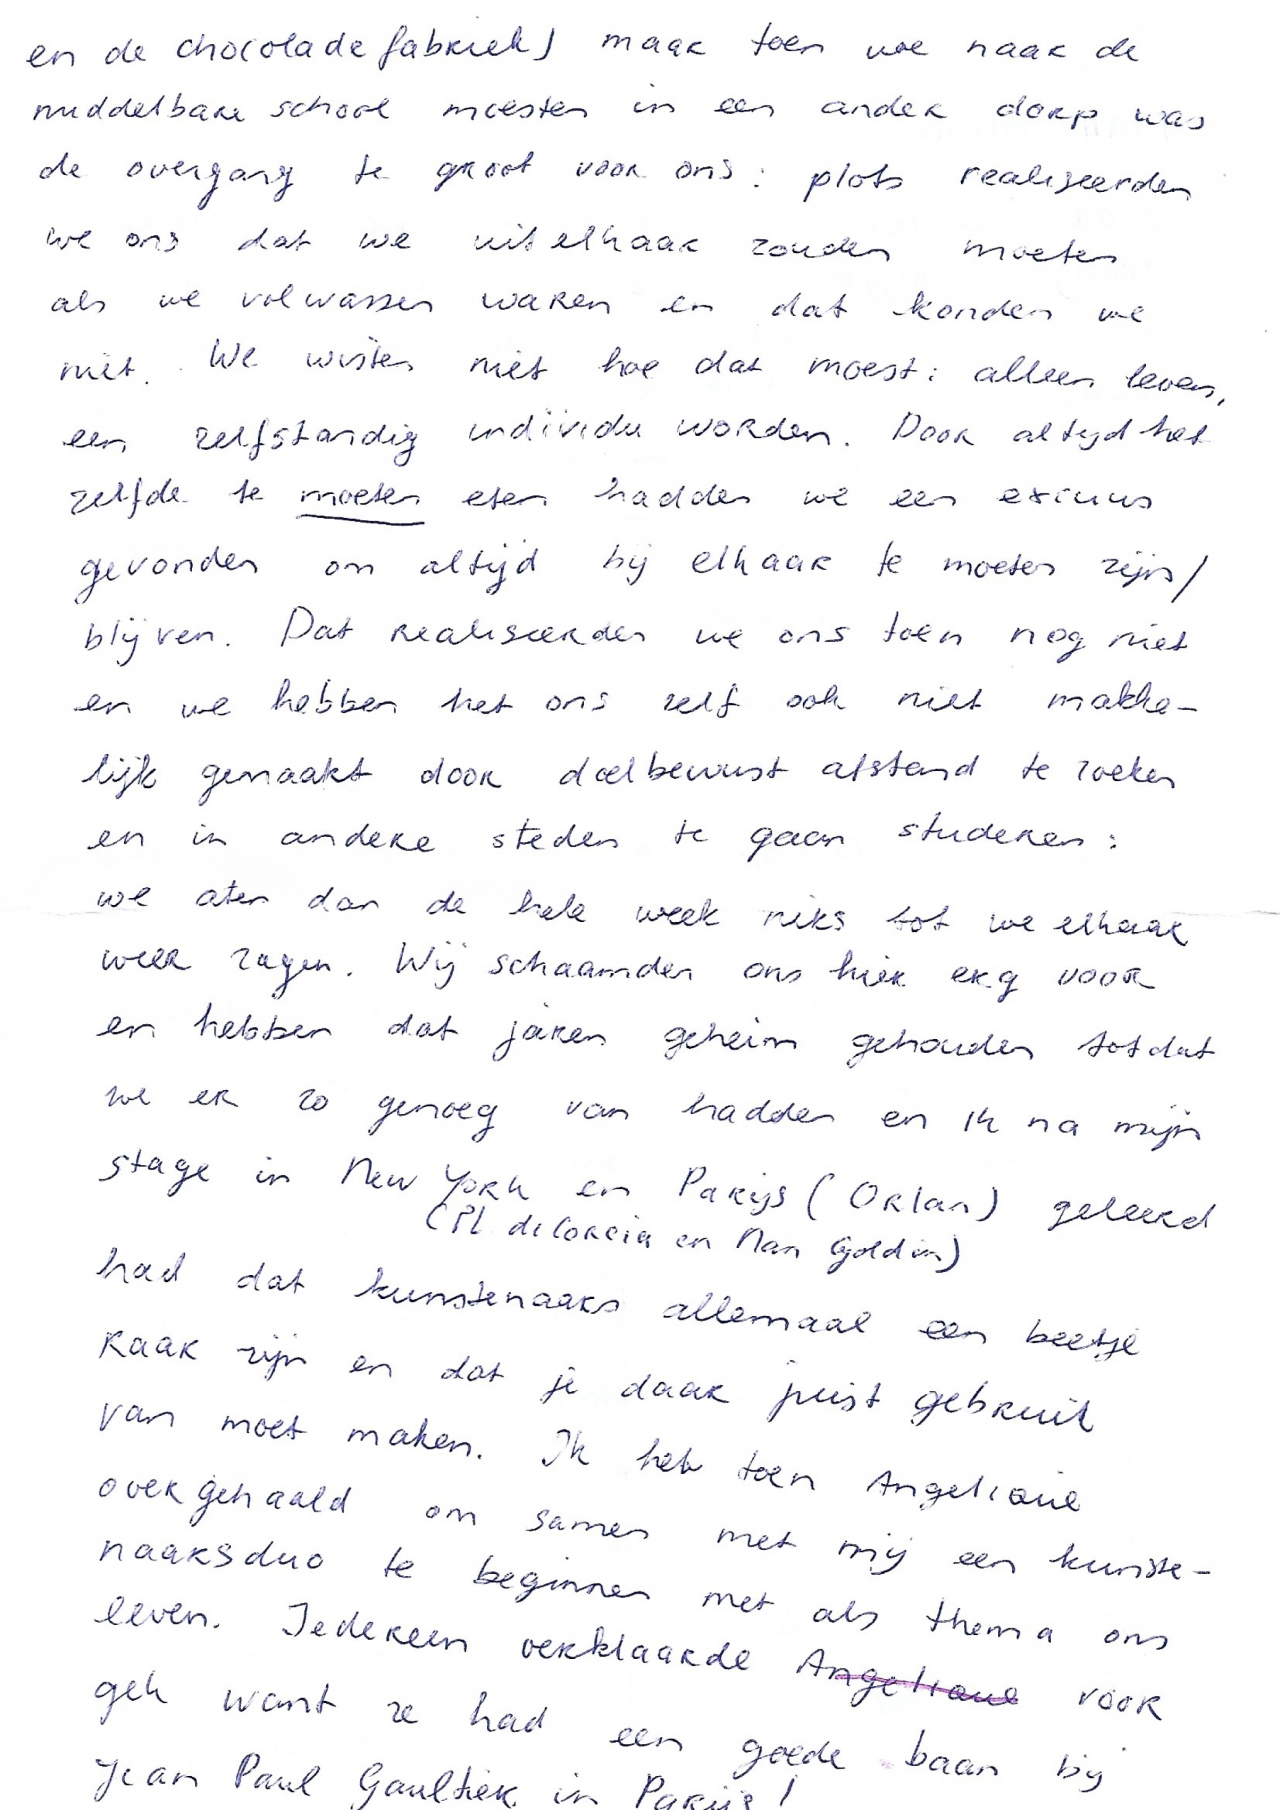 en de chocoladefabriek) maar toen we naar de
middelbare school moesten in een ander dorp was
de overgang te groot voor ons: plots realiseerden
we ons dat we uit elkaar zouden moeten
als we volwassen waren en dat konden we
niet. We wisten niet hoe dat moest: alleen leven,
een zelfstandig individu worden. Door altijd het
zelfde te moeten eten hadden we een excuus
gevonden om altijd bij elkaar te moeten zijn/
blijven. Dat realiseerden we ons toen nog niet
en we hebben het ons zelf ook niet makke-
lijk gemaakt door doelbewust afstand te zoeken
en in andere steden te gaan studeren:
we aten dan de hele week niks tot we elkaar
weer zagen. Wij schaamden ons hier erg voor
en hebben dat jaren geheim gehouden totdat
we er zo genoeg van hadden en ik na mijn
stage in New York en Parijs (Orlan) geleerd
(PL diCorcia en Nan Goldin)
had dat kunstenaars allemaal een beetje
raar zijn en dat je daar juist gebruik
van moet maken. Ik heb toen Angelique
overgehaald om samen met mij een kunste-
naarsduo te beginnen met als thema ons
leven. Iedereen verklaarde Angelique voor
gek want ze had een goede baan bij
Jean Paul Gaultier in Parijs!